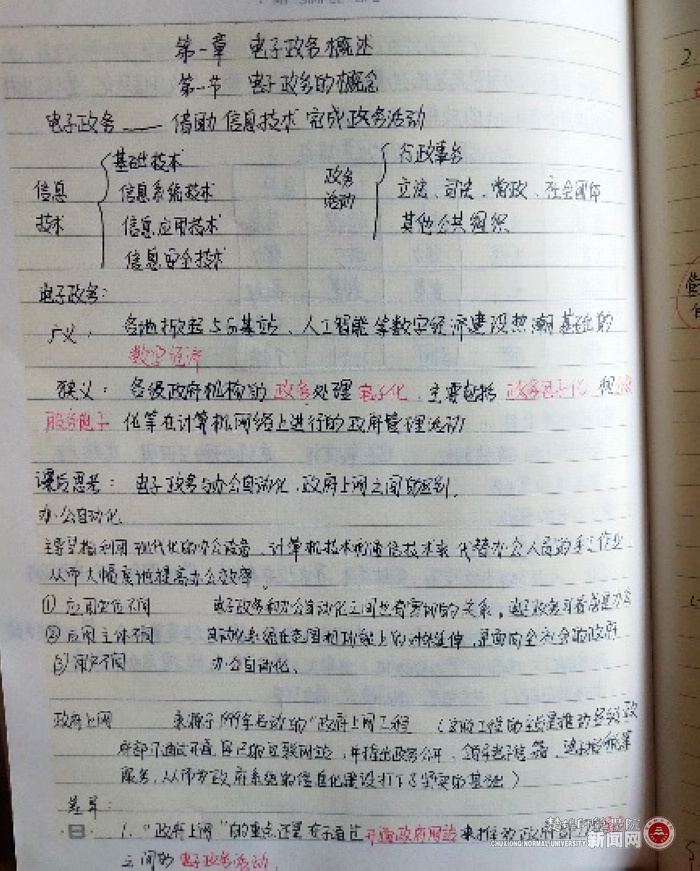 第一章 电子政务概述
第一节 电子政务的概念
电子政务 —— 借助信息技术完成政务活动
信息技术
基础技术
信息系统技术
信息应用技术
信息安全技术
政务活动
行政事务
立法、司法、党政、社会团体
其他公共组织
电子政务:
广义: 各地掀起5G基站、人工智能等数字经济建设热潮基础的
数字经济
狭义: 各级政府机构的政务处理电子化,主要包括政务电子化和
服务电子化等在计算机网络上进行的政府管理活动
课后思考: 电子政务与办公自动化、政府上网之间的区别.
办公自动化
主要是指利用现代化的办公设备、计算机技术和通信技术来代替办公人员的手工作业,
从而大幅度地提高办公效率
① 应用定位不同 电子政务和办公自动化之间也有密切的关系,电子政务可看成是办公
② 应用主体不同 自动化系统在范围和功能上的对外延伸,是面向全社会的政府
③ 不同 办公自动化.
政府上网 来源于1999年启动的“政府上网工程”(这项工程的主旨是推动各级政
府部门通过 互联网站,并推出政务公开、领导电子信箱、
服务,从而为政府系统的信息化建设打下了坚实的基础)
差异:
1. “政府上网”的重点还是在于通过开通政府网站来推动政府部门
之间的电子政务活动.
楚雄师范学院
新闻网
CHUXIONG NORMAL UNIVERSITY
2